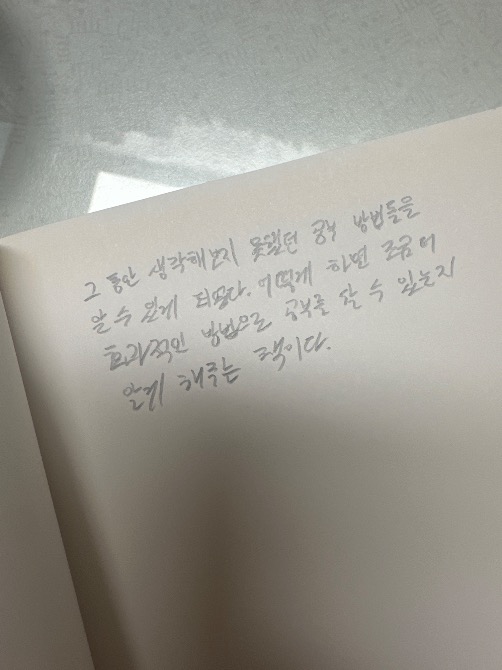 그 동안 생각해보지 못했던 공부 방법들을
알 수 있게 되었다. 어떻게 하면 조금 더
효과적인 방법으로 공부를 할 수 있는지
알게 해주는 책이다.